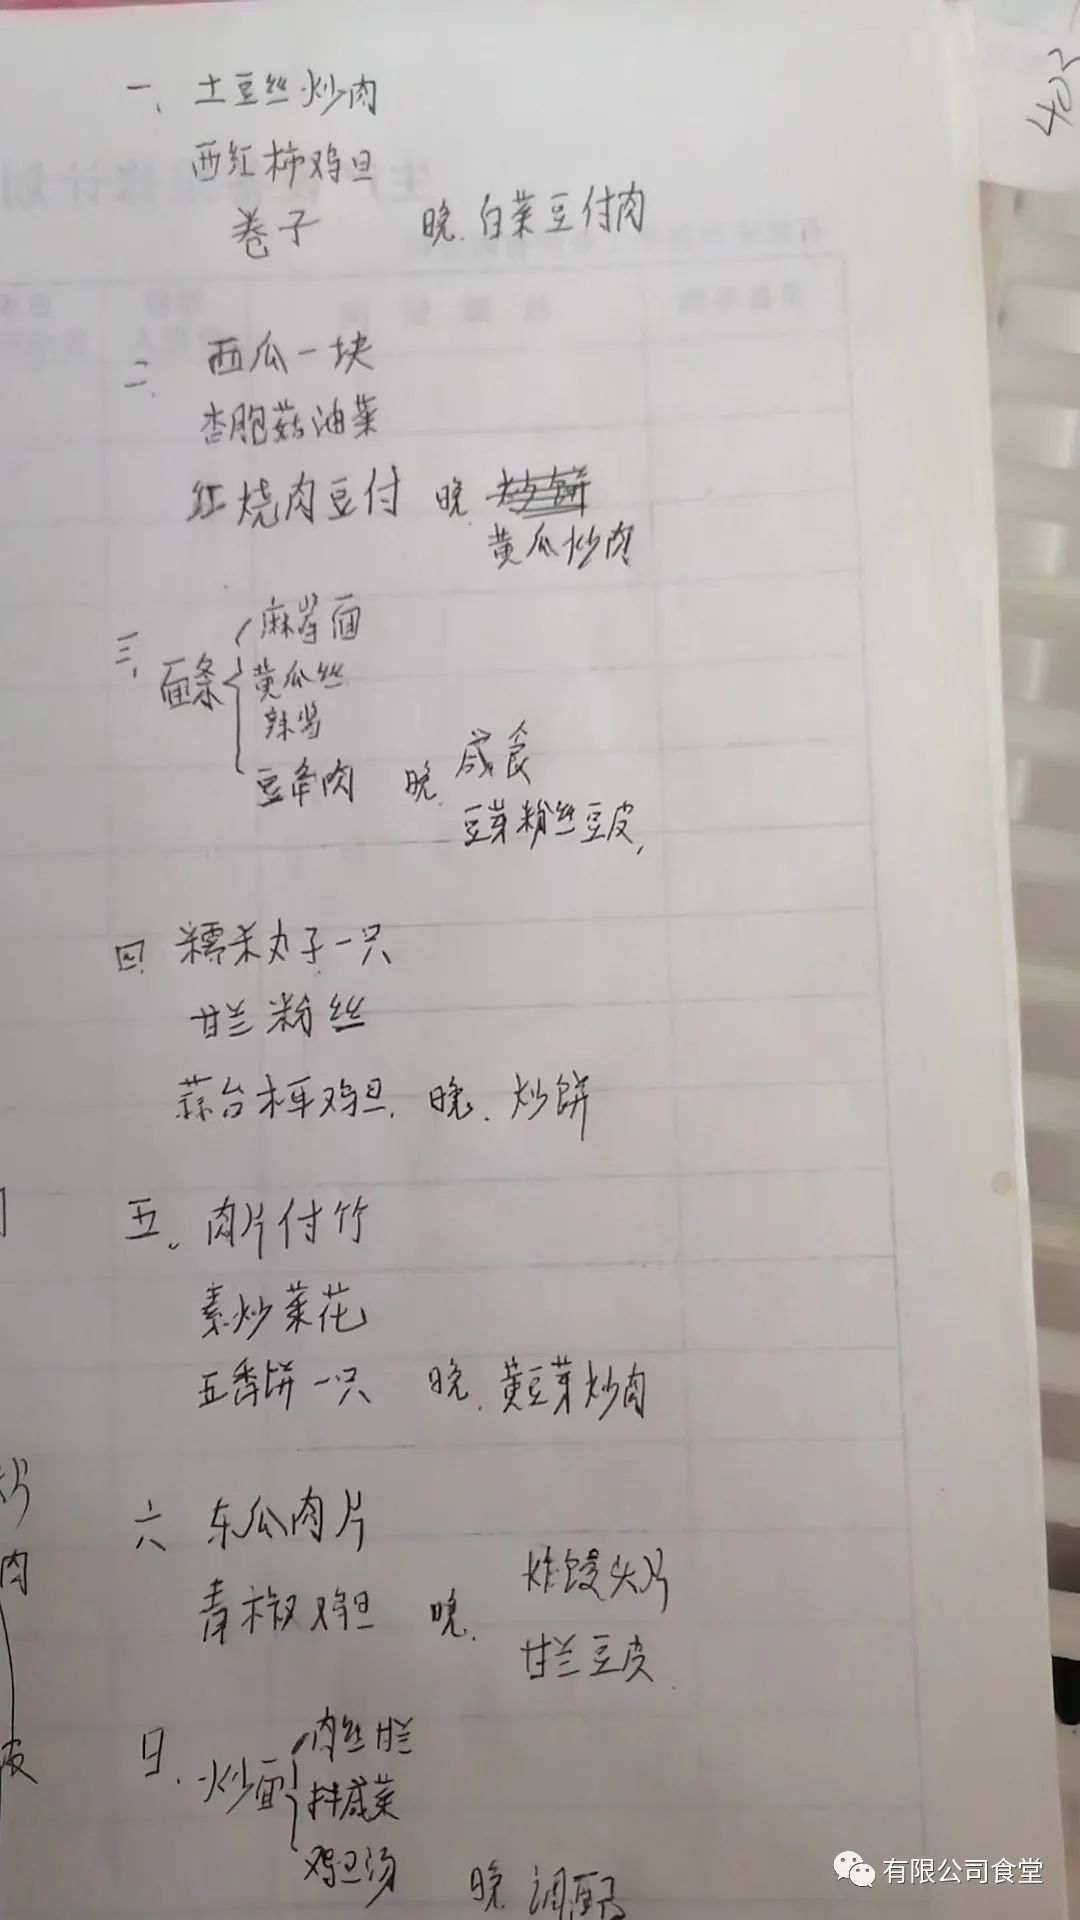 一、土豆丝炒肉
西红柿鸡旦
卷子 晚.白菜豆付肉
二、西瓜一块
杏胞菇油菜
红烧肉豆付 晚.
黄瓜炒肉
三、面条
麻酱面
黄瓜丝
辣酱
豆角肉 晚.咸食
豆芽粉丝豆皮,
四.糯米丸子一只
甘兰粉丝
蒜台木耳鸡旦. 晚.炒饼
五.肉片付竹
素炒菜花
五香饼一只 晚.黄豆芽炒肉
六 东瓜肉片
青椒鸡旦 晚.炸馒头片
甘兰豆皮
日.炒面
肉丝甘兰
拌咸菜
鸡旦汤
晚 调配
403
肉
皮
有限公司食堂